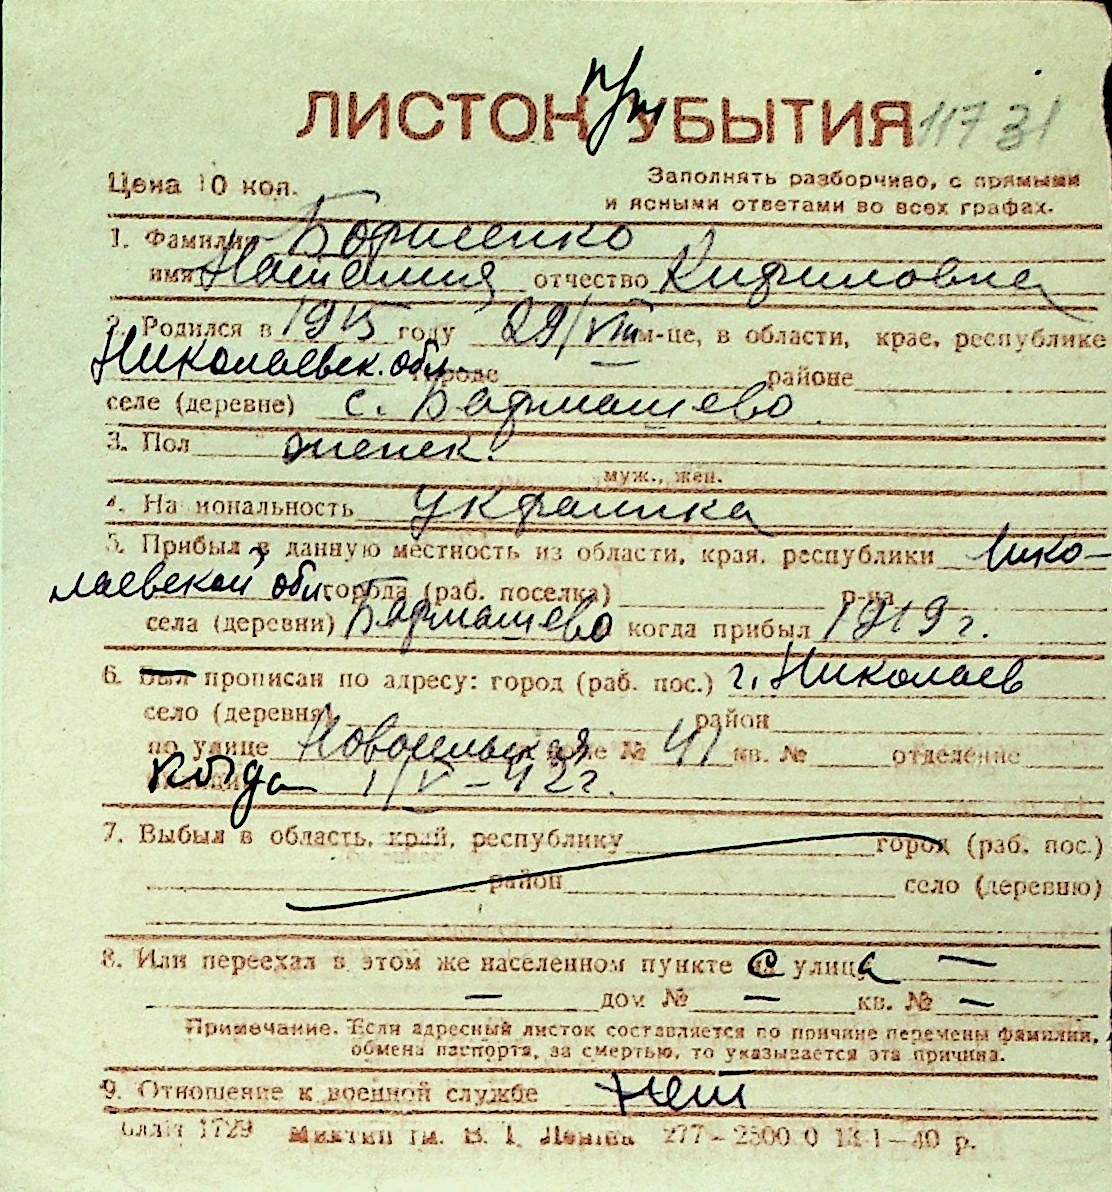 ЛИСТОК при УБЫТИЯ 11731
Цена 10 коп.
Заполнять разборчиво, с прямыми
и ясными ответами во всех графах.
1. Фамилия Борисенко
имя Наталия отчество Кириловна
2. Родился в 1915 году 29/VIII м-це, в области, крае, республике
Николаевск. обл. городе районе
селе (деревне) с. Бармашево
3. Пол женск.
муж., жен.
4. Национальность украинка
5. Прибыл в данную местность из области, края, республики Нико-
лаевской обл. города (раб. поселка) р-на
села (деревни) Бармашево когда прибыл 1919 г.
6. Был прописан по адресу: город (раб. пос.) г. Николаев
село (деревня) район
по улице доме № 41 кв. № отделение
когда 1/V – 42 г.
7. Выбыл в область, край, республику город (раб. пос.)
район село (деревню)
8. Или переехал в этом же населенном пункте с улица —
— дом № — кв. № —
Примечание. Если адресный листок составляется по причине перемены фамилии,
обмена паспорта, за смертью, то указывается эта причина.
9. Отношение к военной службе нет
1729 им. В. І. Леніна 277–2500 0 13-1–40 р.